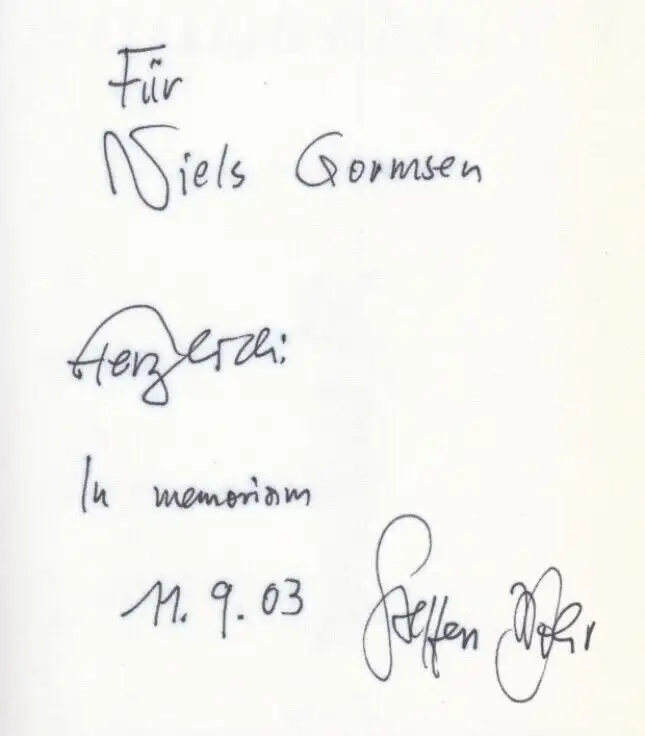 Für
Niels Gormsen
Herzlich:
In memoriam
11. 9. 03
Steffen